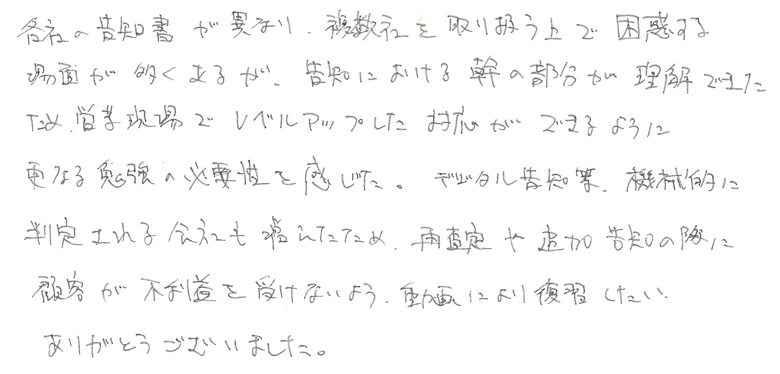 各社の告知書が異なり、複数社を取り扱う上で困惑する
場面が多くあるが、告知における幹の部分が理解できた
ため、営業現場でレベルアップした対応ができるように
更なる勉強の必要性を感じた。デジタル告知等、機械的に
判定される会社も増えたため、再査定や追加告知の際に
顧客が不利益を受けないよう、動画により復習したい
ありがとうございました。